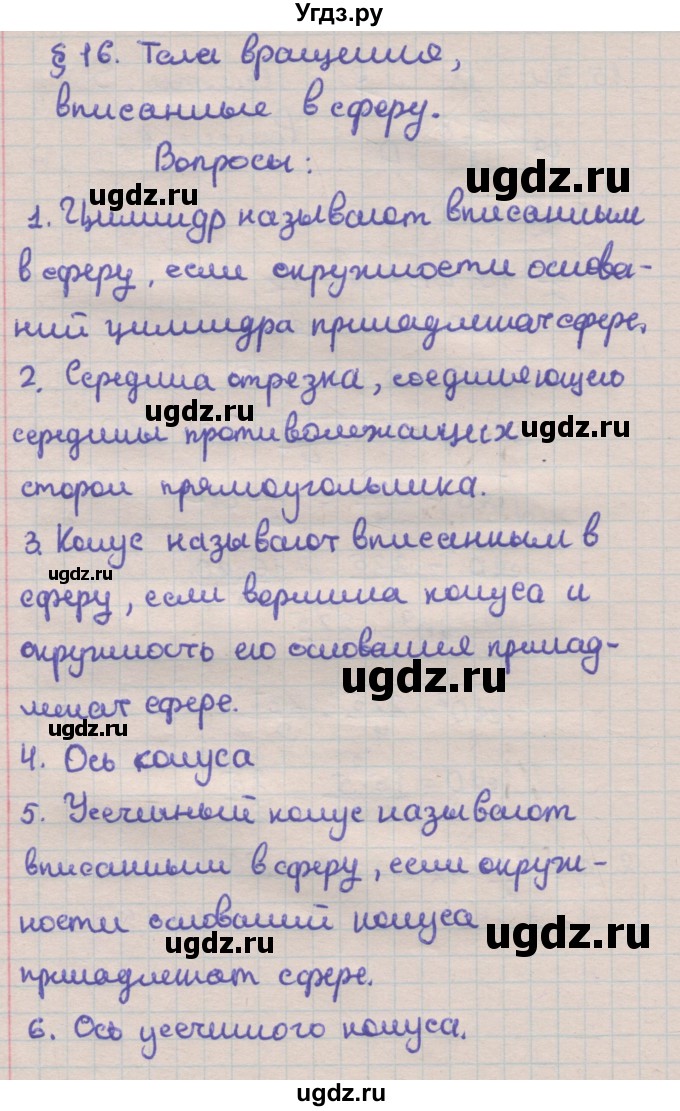 Угдз.ру
§ 16. Тела вращения,
вписанные в сферу.
Вопросы:
ugdz.ru
ugdz.ru
1. Цилиндр называют вписанным
в сферу, если окружности основа-
ний цилиндра принадлежат сфере.
ugdz.ru
2. Середина отрезка, соединяющего
ugdz.ru
середины противолежащих
ugdz.ru
сторон прямоугольника.
3. Конус называют вписанным в
ugdz.ru
сферу, если вершина конуса и
окружность его основания принад-
ugdz.ru
лежат сфере.
ugdz.ru
4. Ось конуса
5. Усечнный конус называют
вписанным в сферу, если окруж-
ности оснований конуса
ugdz.ru
ugdz.ru
принадлежат сфере.
6. Ось усечнного конуса.
ugdz.ru